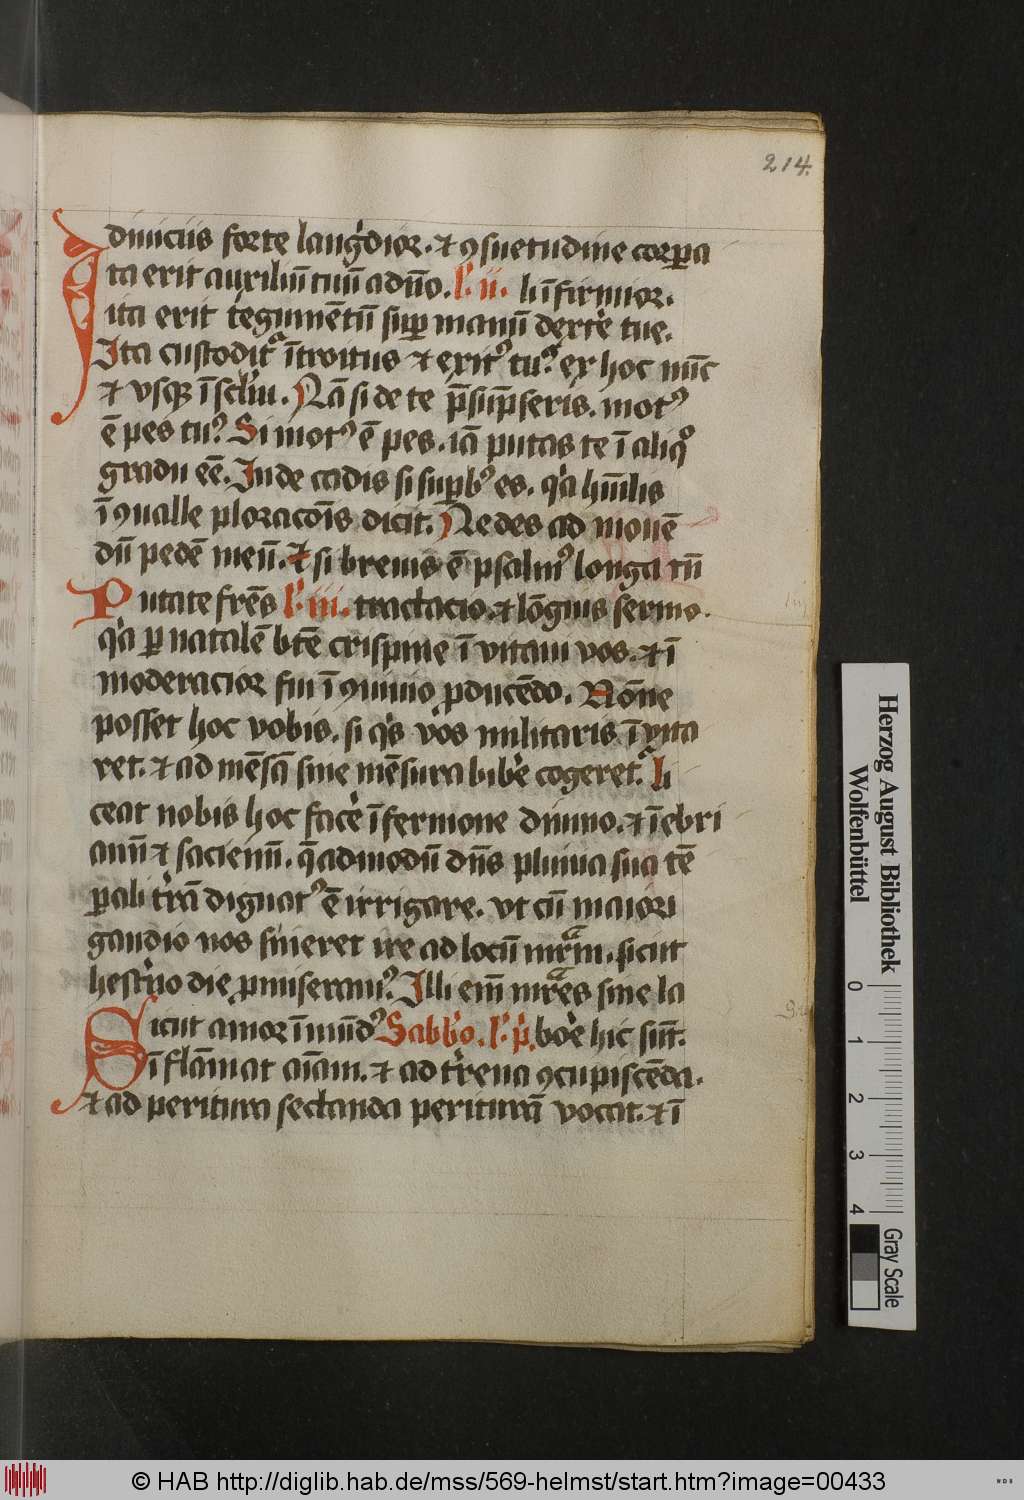 214.
diuiciis forte lang᷑dior. ⁊ ꝯsuetudine corꝑa
Ita erit auxiliū tuū a dn̄o. l᷑. ii. li īfirmior.
ita erit tegumētū suꝑ manū dextre tue.
Ita custodit᷑ ītroitus ⁊ exitꝰ tuꝰ ex hoc nūc
⁊ vsqꝫ ī sclm̄. Nā si de te p̄sūpseris. motꝰ
ē pes tuꝰ Si motꝰ ē pes. iā putas te ī aliqͦ
gradu eē. Inde cadis si suꝑbꝰ es. qͥa hūilis
ī ꝯualle ploracōis dicit. Ne des ad mouē
dū pedē meū. ⁊ si breuis ē psalmꝰ longa tn̄
Putate frēs l᷑. iii. tractacio. ⁊ lōguis sermo.
qͥa ꝑ natalē btē crispine ī vitaui vos. ⁊ ī
moderacior fui ī ꝯuiuio ꝓducēdo. Nōne
posset hoc vobis. si qͥs vos militaris ī vita
ret. ⁊ ad mēsā sine mēsura bibe᷑ cogeret᷑. li
ceat nobis hoc face᷑ ī sermone diuino. ⁊ īebri
amī ⁊ saciemī. qēadmodū dn̄s pluuia sua tē
ꝑali tr̄rā dignatꝰ ē irrigare. vt cū maiori
gaudio nos sineret ire ad locū mr̄m. sicut
hest᷑no die ꝓmiseramꝰ. Illi em̄ mr̄es sine la
Sicut amor īmūdꝰ Sabb᷑o. l᷑. p᷑. boe᷑ hic sūt.
īflāmat aīam. ⁊ ad t᷑rena ꝯcupiscēda.
⁊ ad peritura sectanda periturā vocat. ⁊ ī
Herzog August Bibliothek
Wolfenbüttel
0 1 2 3 4
Gray Scale
© HAB http://diglib.hab.de/mss/569-helmst/start.htm?image=00433